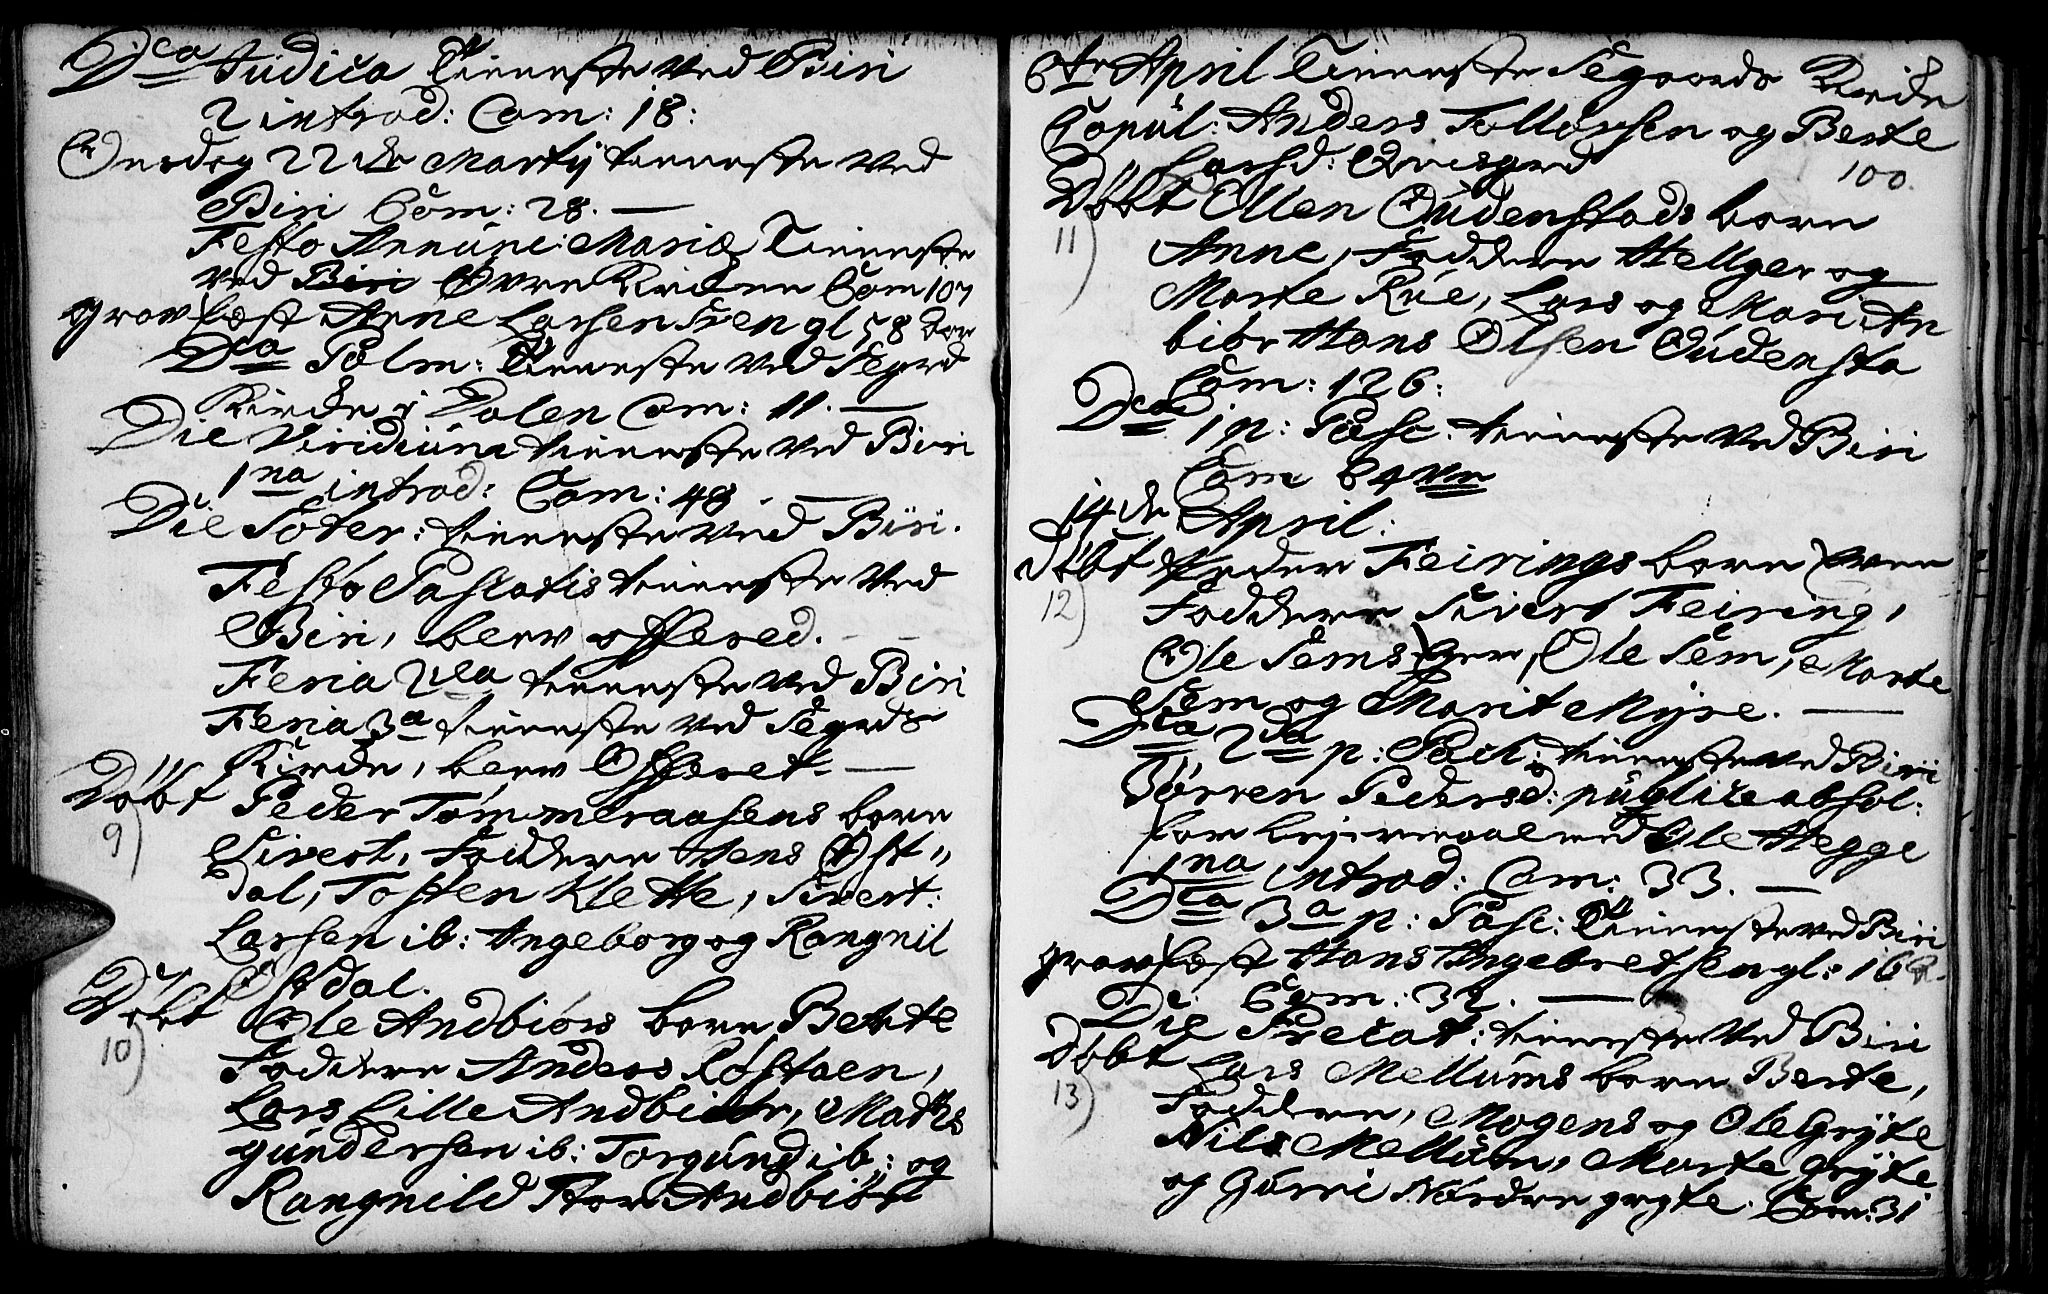 Dca Judica Tienneste ved Biri
2 introd: Com: 18:
Onsdag 22de Martij tienneste ved
Biri Com: 28. —
Festo Annunc: Mariæ Tienneste
ved Biri Øvre Kirchen Com 107
grovfæst Arne Larsen Sven gl 58
Dca Palm: Tienneste ved Segrd
Kirche i Dalen Com: 11. —
Die Viridium tienneste ved Biri
1na introd: Com: 48. —
Die Jover: tienneste ved Biri.
Festo Paschatis tienneste ved
Biri, blev offered. —
Feria 2da tienneste ved Biri
Feria 3a tienneste ved Segrds
Kirche, blev Offeret. —
Døbt Peder Tømmeraasens barn
9) Sivert, Faddere Jens Øst=
dal, Tosten Klette, Sivert
Larsen ib: Ingeborg og Rangnil
Østdal.
Døbt Ole Andbiørs barn Berte
10) Faddere Anders Røstøen,
Lars Lille Andbiør, Maths
gundersen ib: Torgund ib: og
Rangnild Stor Andbiør
6te April Tienneste Segaards Kirche
Copul: Anders Tollersen og Berte
Larsd: Qvisgrd
100.
Døbt Ellen Oudenstads barn
11) Anne, Faddere Hellger og
Marte Rue, Lars og Mari An
biør Hans Olsen Oudensta
Com: 126:
Dca 1 p: Pasc: tienneste ved Biri
Com 64
14de April:
Døbt Peder Feirings barn Even
12) Faddere Sivert Feiring,
Ole Sems Ever, Ole Sem, Marte
Sem og Marit Myre. —
Dca 2da p: Pasch: tienneste ved Biri
Jørren Pedersd: publice absol:
for leyermaal med Ole Hegge
1na introd: Com: 33. —
Dca 3a p: Pasc: Tienneste ved Biri
grovfæst Hans Ingebretsen gl: 16
Com: 32. —
Die Precat: tienneste ved Biri
Døbt Lars Mellums barn Berte,
13) Faddere, Mogens og Ole Gryte
Nils Mellum, Marte Gryte
og Gurri Nordre gryte. Com: 31